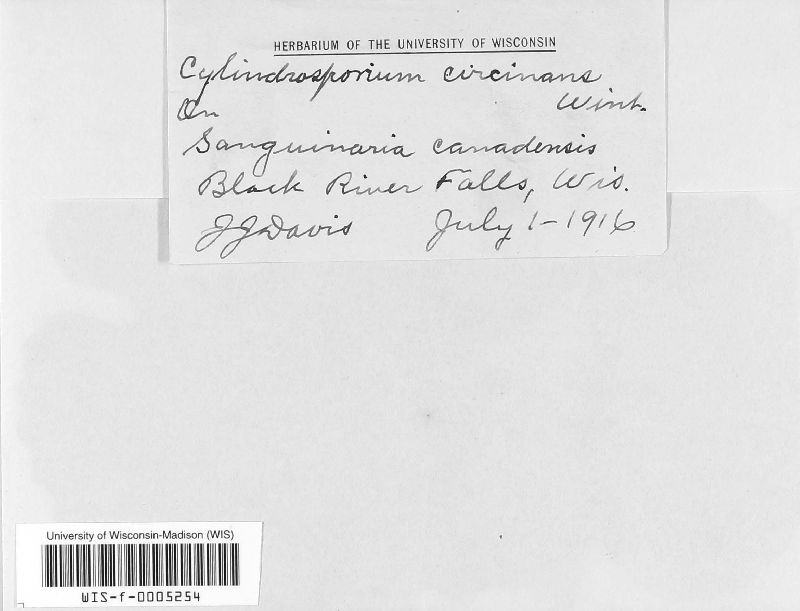 HERBARIUM OF THE UNIVERSITY OF WISCONSIN
Cylindrosporium circinans
Wint.
On
Sanguinaria canadensis
Black River Falls, Wis.
JJDavis July 1-1916
University of Wisconsin-Madison (WIS)
WIS-f-0005254